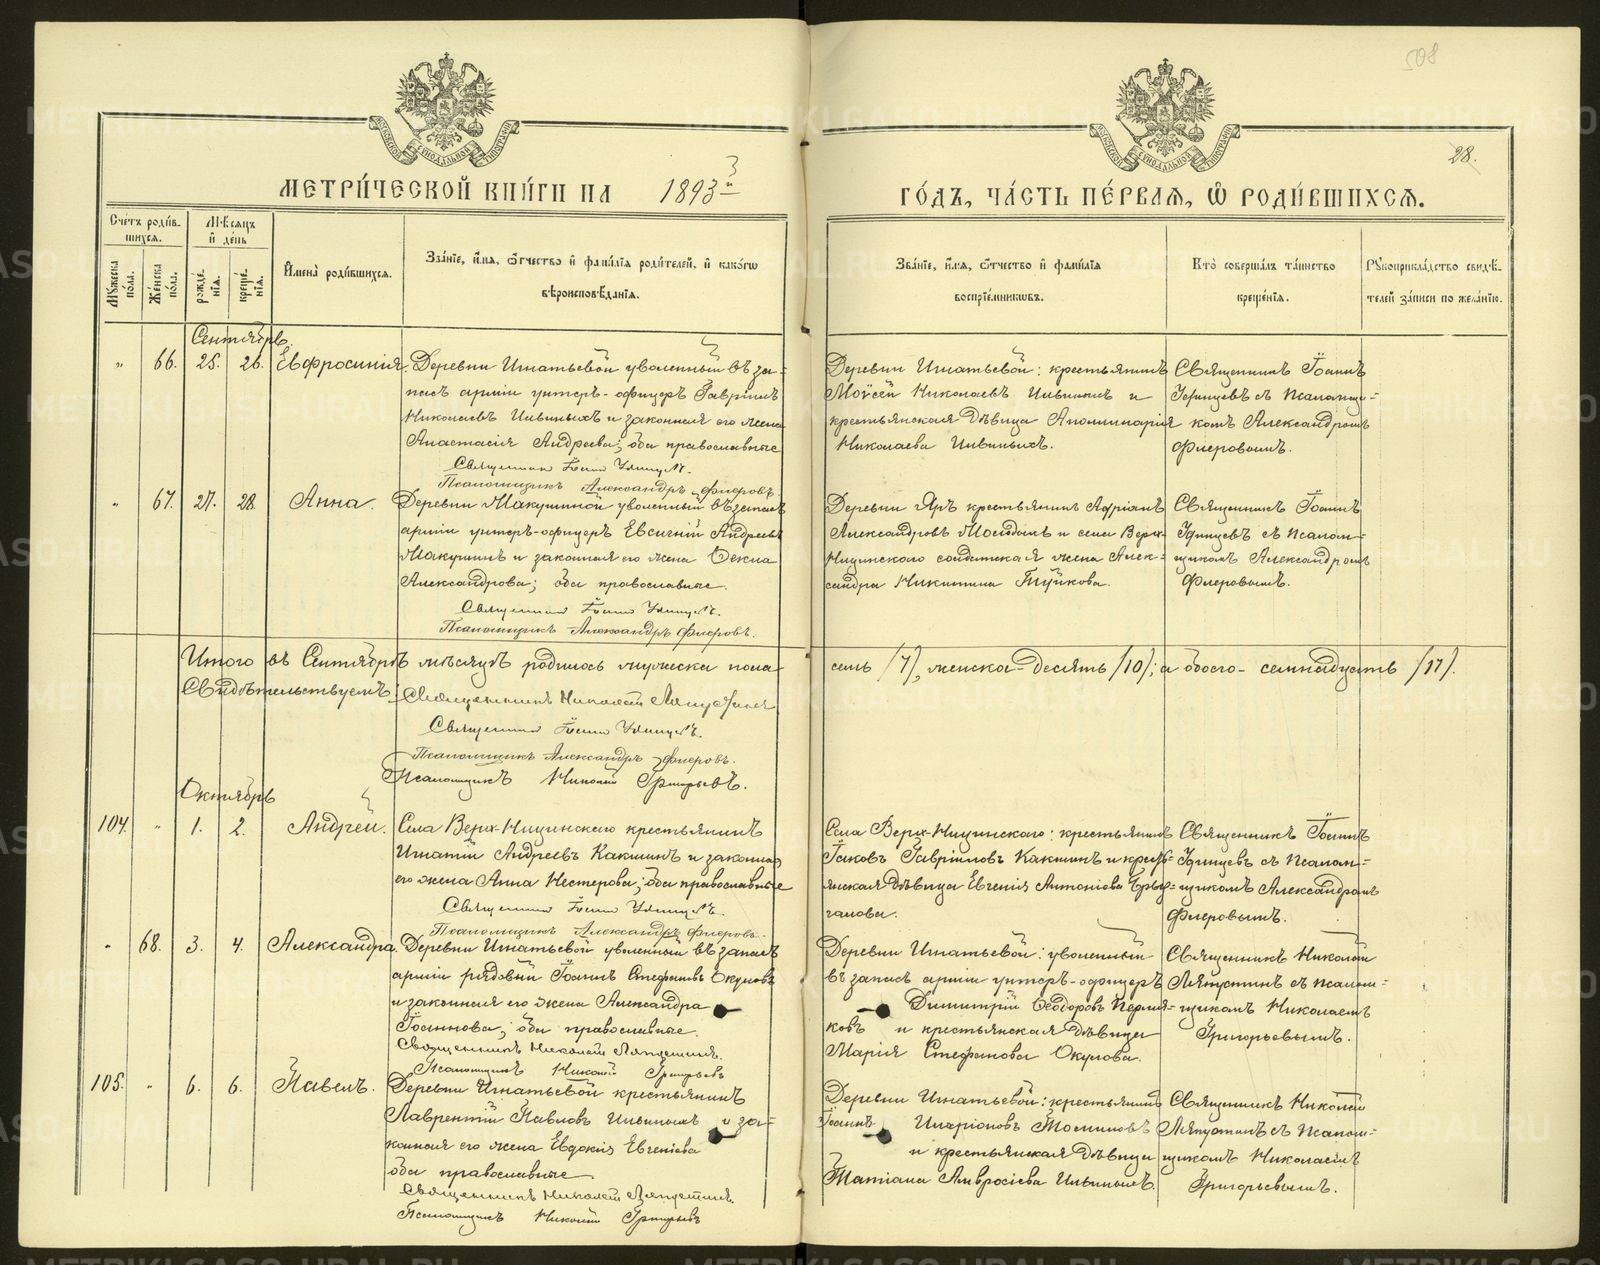 508
28.
МЕТРИ́ЧЕСКОЙ КНИ́ГИ НА 1893й ГО́ДЪ, ЧА́СТЬ ПЕ́РВАЯ, Ѡ РОДИ́ВШИХСЯ.
Сче́тъ роди́в-
шихся.
Му́жеска по́ла.
Же́нска по́ла.
Мѣ́сяцъ
и҆ де́нь
рожде́нїя.
креще́нїя.
И҆мена̀ роди́вшихся.
Зва́нїе, и҆́мя, ѻ҆́тчество и҆ фами́лїя роди́телей, и҆ како́гѡ
вѣроисповѣ́данїя.
Зва́нїе, и҆́мя, ѻ҆́тчество и҆ фами́лїя
воспрїе́мниковъ.
Кто̀ соверша́лъ та́инство
креще́нїя.
Рꙋкоприкла́дство свидѣ́-
телей за́писи по жела́нїю.
Сентябрь.
" 66. 25. 26. Евфросинія.
Деревни Игнатьевой уволенный въ за-
пасъ арміи унтеръ-офицеръ Гавріилъ
Николаевъ Ильиныхъ и законная его жена
Анастасія Андреева; оба православные
Священник Іоанн Удинцевъ.
Псаломщикъ Александръ Флеровъ.
Деревни Игнатьевой: крестьянинъ
Моѵсей Николаевъ Ильиныхъ и
крестьянская дѣвица Аполлинарія
Николаева Ильиныхъ.
Священникъ Іоаннъ
Удинцевъ съ псаломщи-
комъ Александромъ
Флеровымъ.
" 67. 27. 28. Анна.
Деревни Макушиной уволенный въ запасъ
арміи унтеръ-офицеръ Евсигній Андреевъ
Макушинъ и законная его жена Ѳекла
Александрова; оба православные.
Священник Іоанн Удинцевъ.
Псаломщикъ Александръ Флеровъ.
Деревни Яръ крестьянинъ Адріанъ
Александровъ и села Верх-
Ницинского солдатская жена Алек-
сандра Никитина
Священникъ Іоаннъ
Удинцевъ съ псалом-
щикомъ Александромъ
Флеровымъ.
Итого въ Сентябрѣ мѣсяцѣ родилось мужеска пола - семь (7), женска - десять (10); а обоего - семнадцать (17).
Свидѣтельствуемъ: Священникъ Николай Ляпустинъ
Священник Іоанн Удинцевъ.
Псаломщикъ Александръ Флеровъ.
Псаломщикъ Николай Григорьевъ.
Октябрь
104. " 1. 2. Андрей.
Села Верх-Ницинского крестьянинъ
Игнатій Андреевъ Какшинъ и законная
его жена Анна Нестерова; оба православные
Священник Іоанн Удинцевъ.
Псаломщикъ Александръ Флеровъ.
Села Верх-Ницинского: крестьянинъ
Іаковъ Гавріиловъ Какшинъ и кресть-
янская дѣвица Евгенія Антоніева Бры-
галова.
Священникъ Іоаннъ
Удинцевъ съ псалом-
щикомъ Александромъ
Флеровымъ.
" 68. 3. 4. Александра.
Деревни Игнатьевой уволенный въ запасъ
арміи рядовый Іоаннъ Стефановъ Окуловъ
и законная его жена Александра
Іоаннова; оба православные.
Священникъ Николай Ляпустинъ.
Псаломщикъ Николай Григорьевъ
Деревни Игнатьевой: уволенный
въ запасъ арміи унтеръ-офицеръ
Димитрій Ѳеодоровъ Пермя-
ковъ и крестьянская дѣвица
Марія Стефанова Окулова.
Священникъ Николай
Ляпустинъ съ псалом-
щикомъ Николаемъ
Григорьевымъ.
105. " 6. 6. Павелъ.
Деревни Игнатьевой крестьянинъ
Лаврентій Павловъ Ильиныхъ и за-
конная его жена Евдокія Евгеніева
оба православные
Священникъ Николай Ляпустинъ.
Псаломщикъ Николай Григорьевъ
Деревни Игнатьевой: крестьянинъ
Іоаннъ Иларіоновъ Томиловъ
и крестьянская дѣвица
Татіана Амвросіева Ильиныхъ.
Священникъ Николай
Ляпустинъ съ псалом-
щикомъ Николаемъ
Григорьевымъ.
METRIKI.GASO-URAL.RU